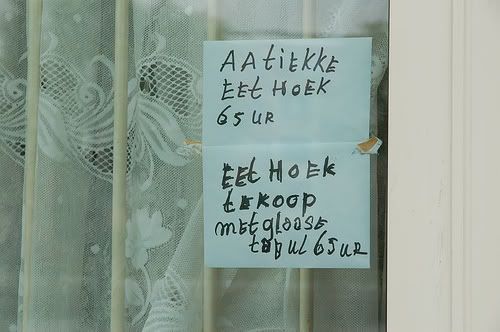 AAtiEKKE
EEt HOEK
65 UR
EEt HOEK
tEKOOP
mEtglaase
tapul 65 UR